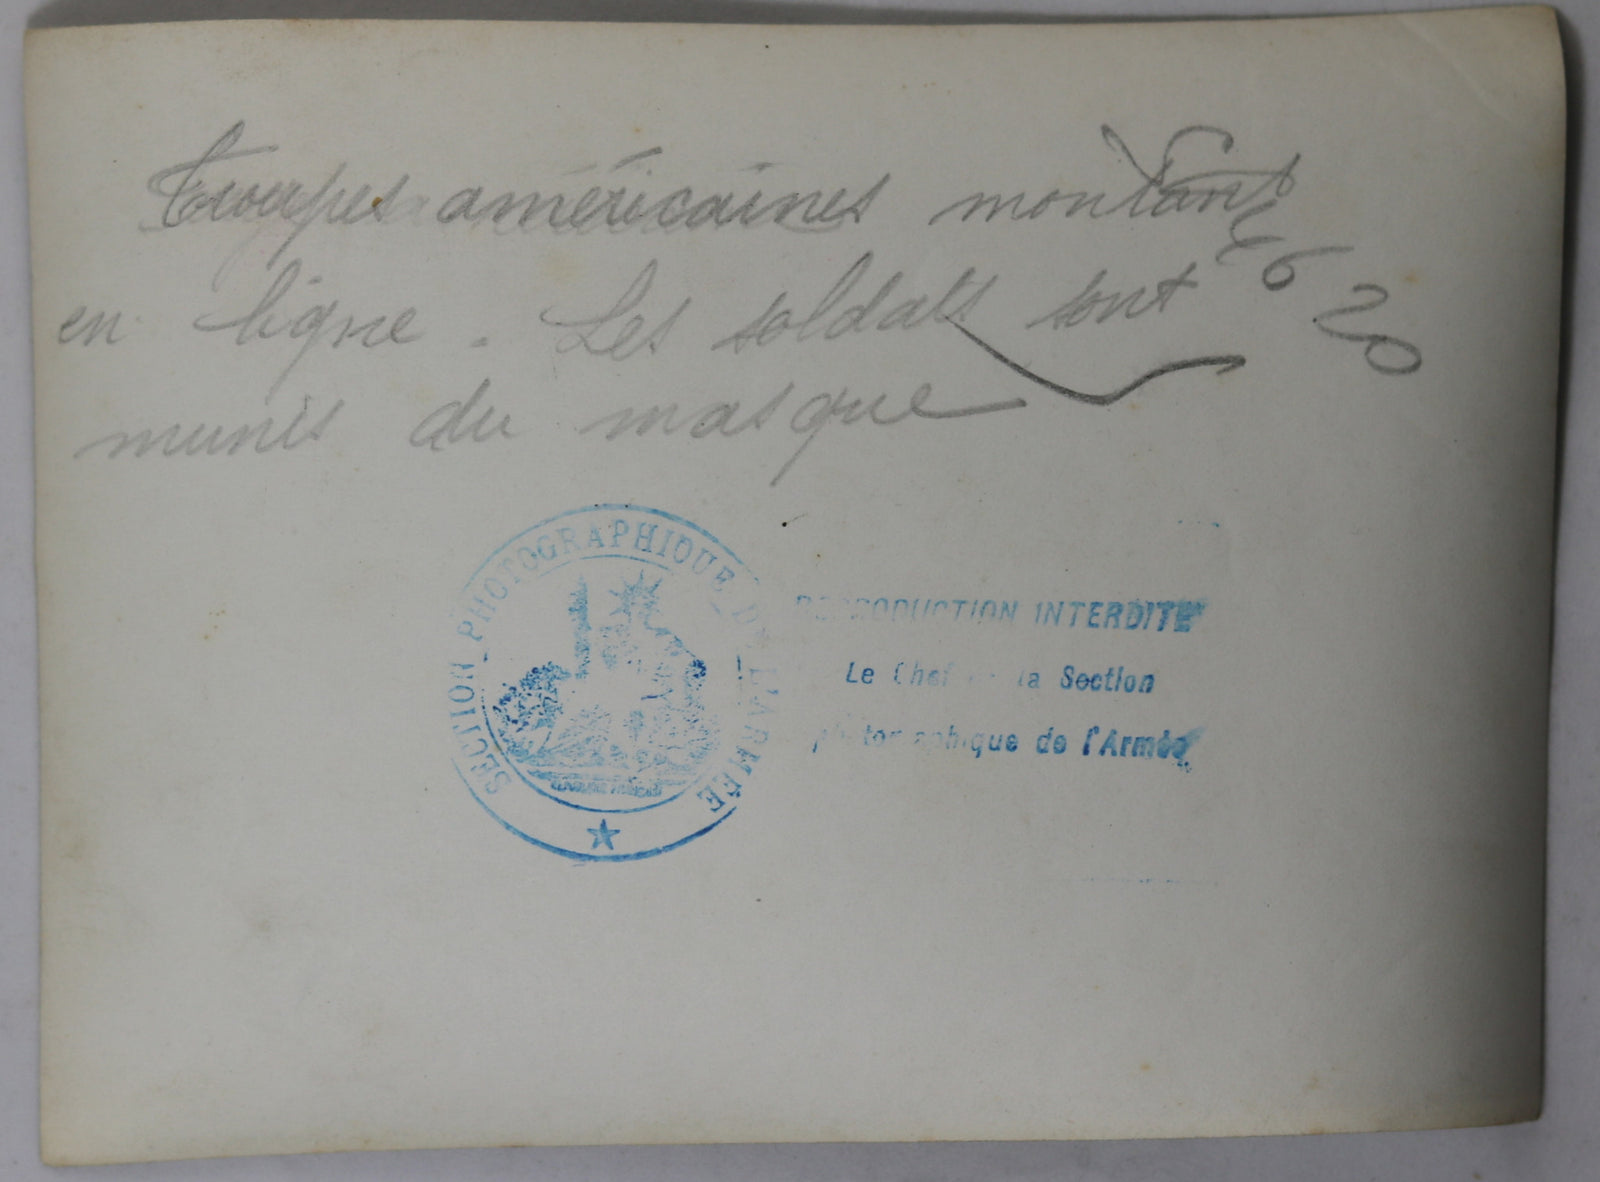 Troupes américaines montant
en ligne. Les soldats sont
munis du masque
20
SECTION PHOTOGRAPHIQUE DE L'ARMÉE
REPRODUCTION INTERDITE
Le Chef de la Section
photographique de l'Armée